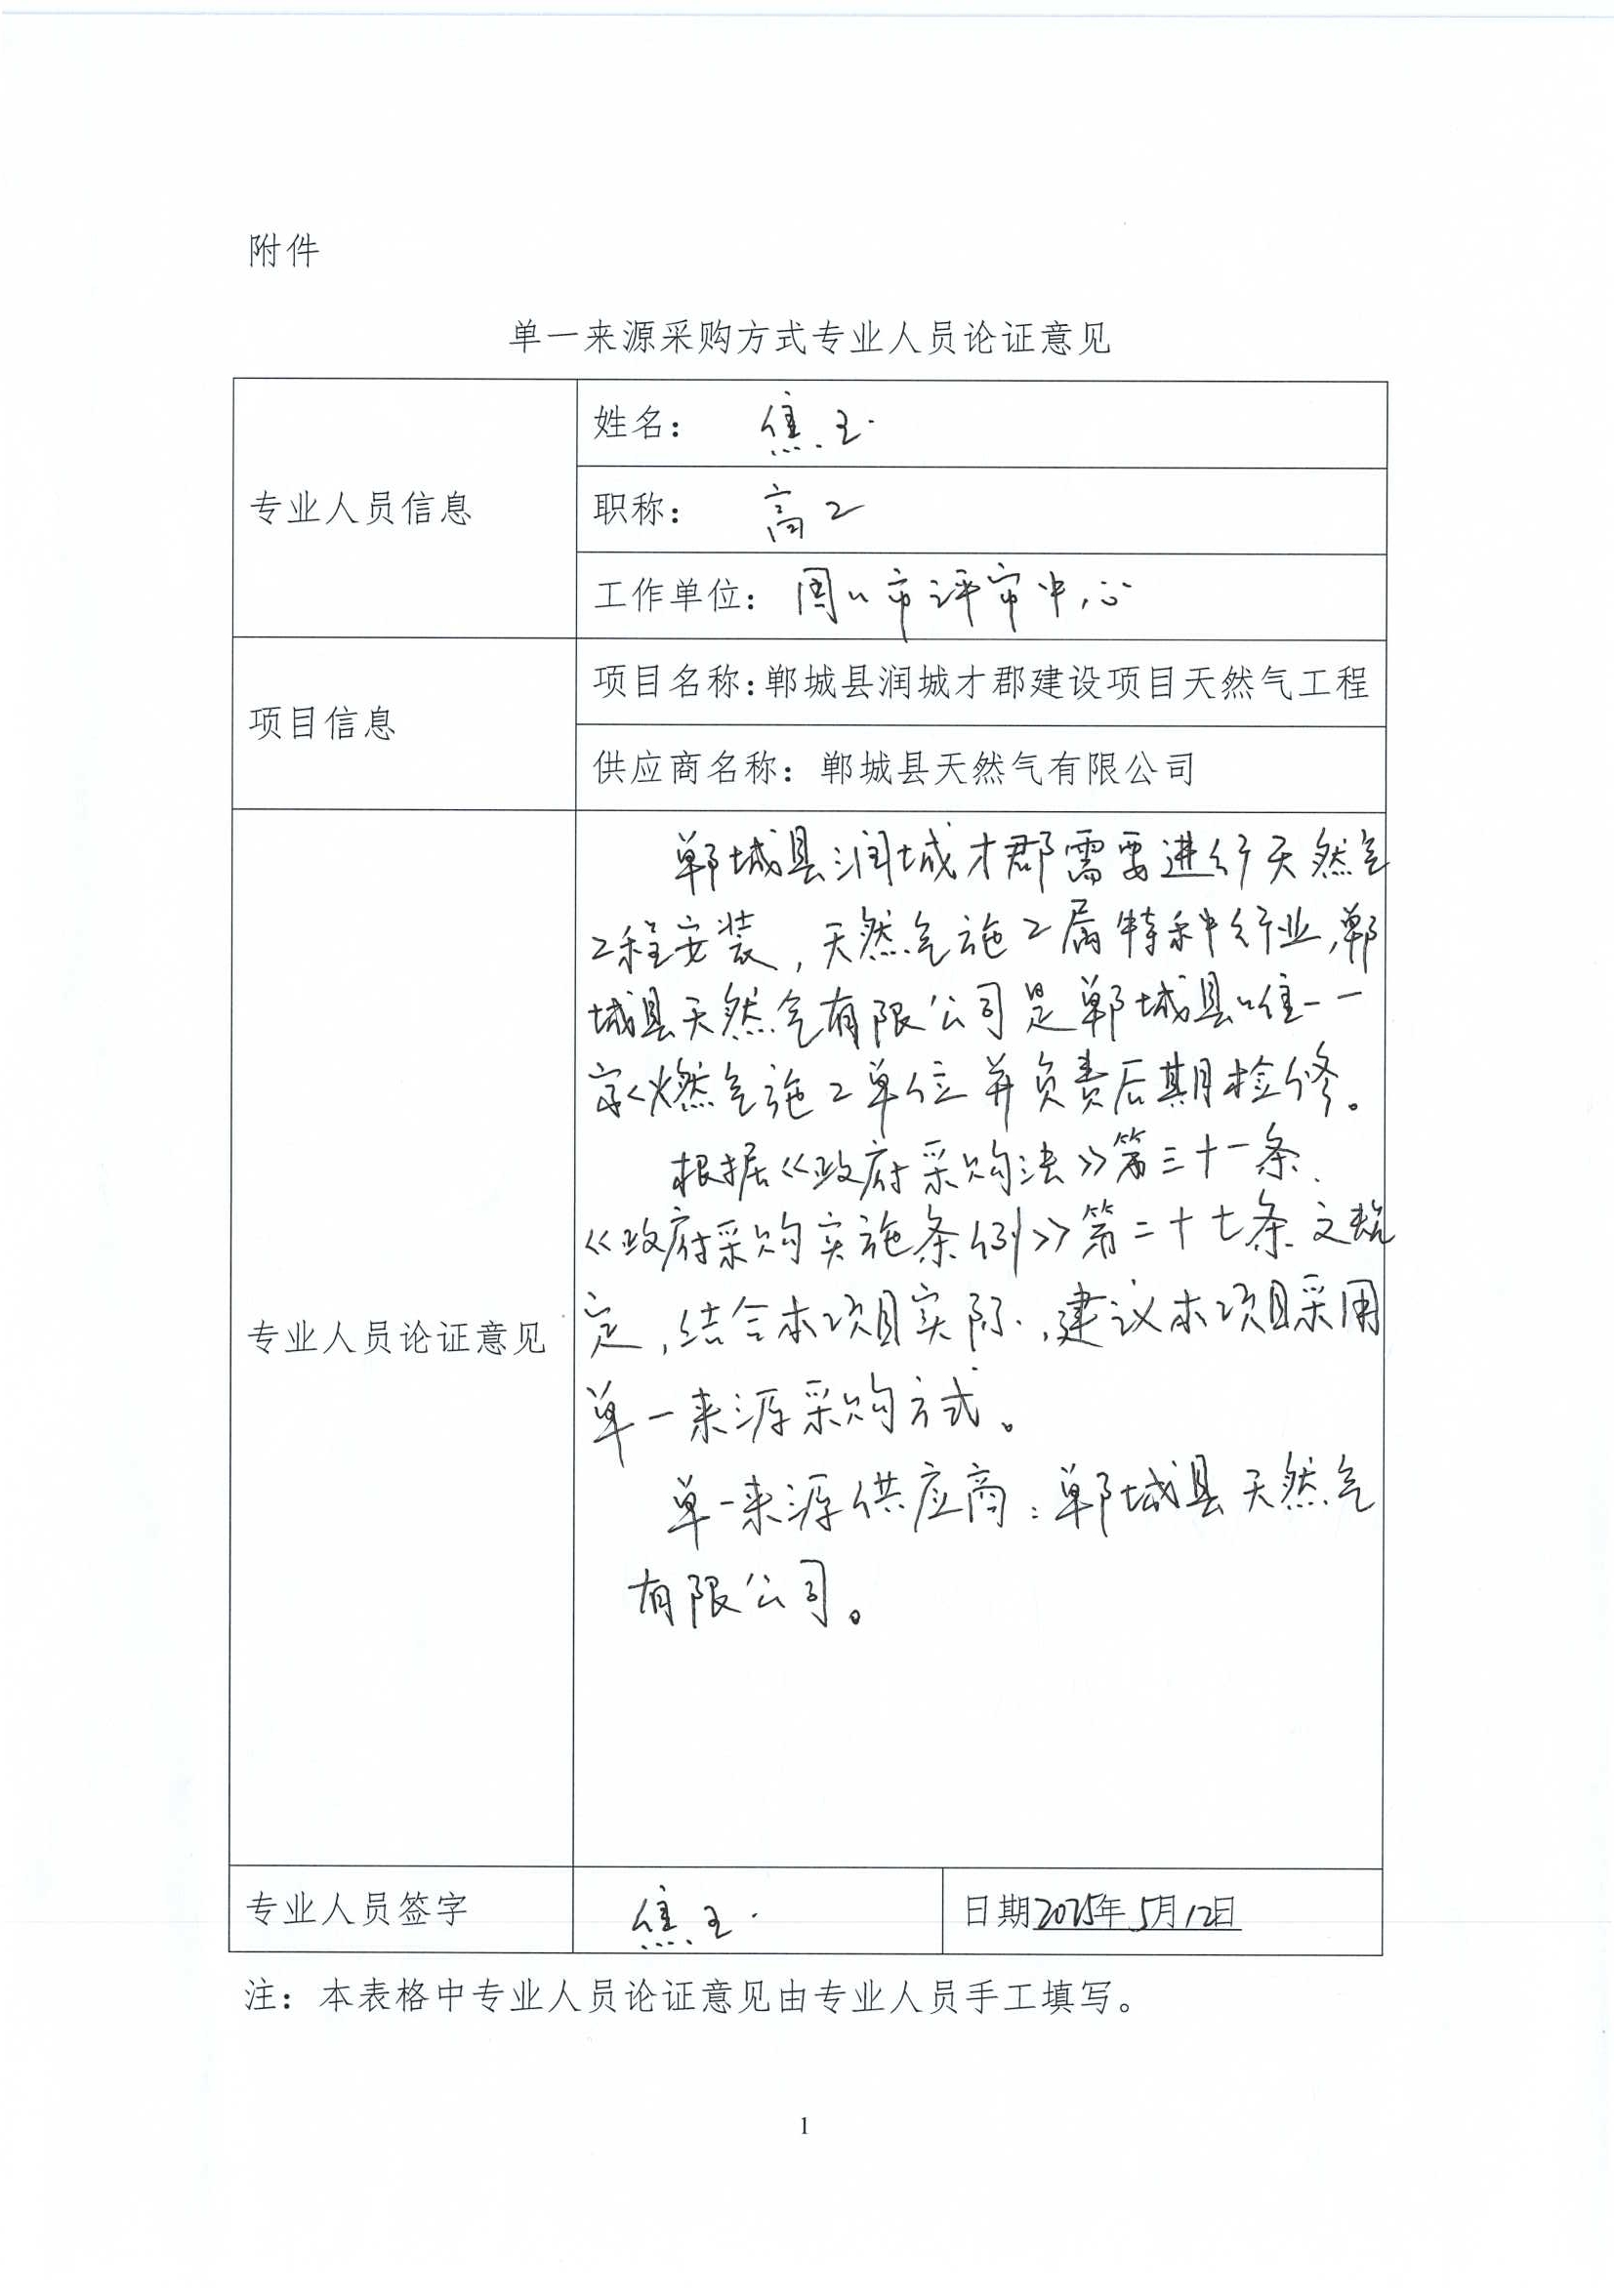 附件
单一来源采购方式专业人员论证意见
专业人员信息
姓名： 焦玉
职称： 高工
工作单位： 周口市评审中心
项目信息
项目名称：郸城县润城才郡建设项目天然气工程
供应商名称：郸城县天然气有限公司
专业人员论证意见
郸城县润城才郡需要进行天然气
工程安装，天然气施工属特种行业，郸
城县天然气有限公司是郸城县唯一一
家燃气施工单位并负责后期检修。
根据《政府采购法》第三十一条、
《政府采购实施条例》第二十七条之规
定，结合本项目实际，建议本项目采用
单一来源采购方式。
单一来源供应商：郸城县天然气
有限公司。
专业人员签字
焦玉
日期2025年5月12日
注：本表格中专业人员论证意见由专业人员手工填写。
1